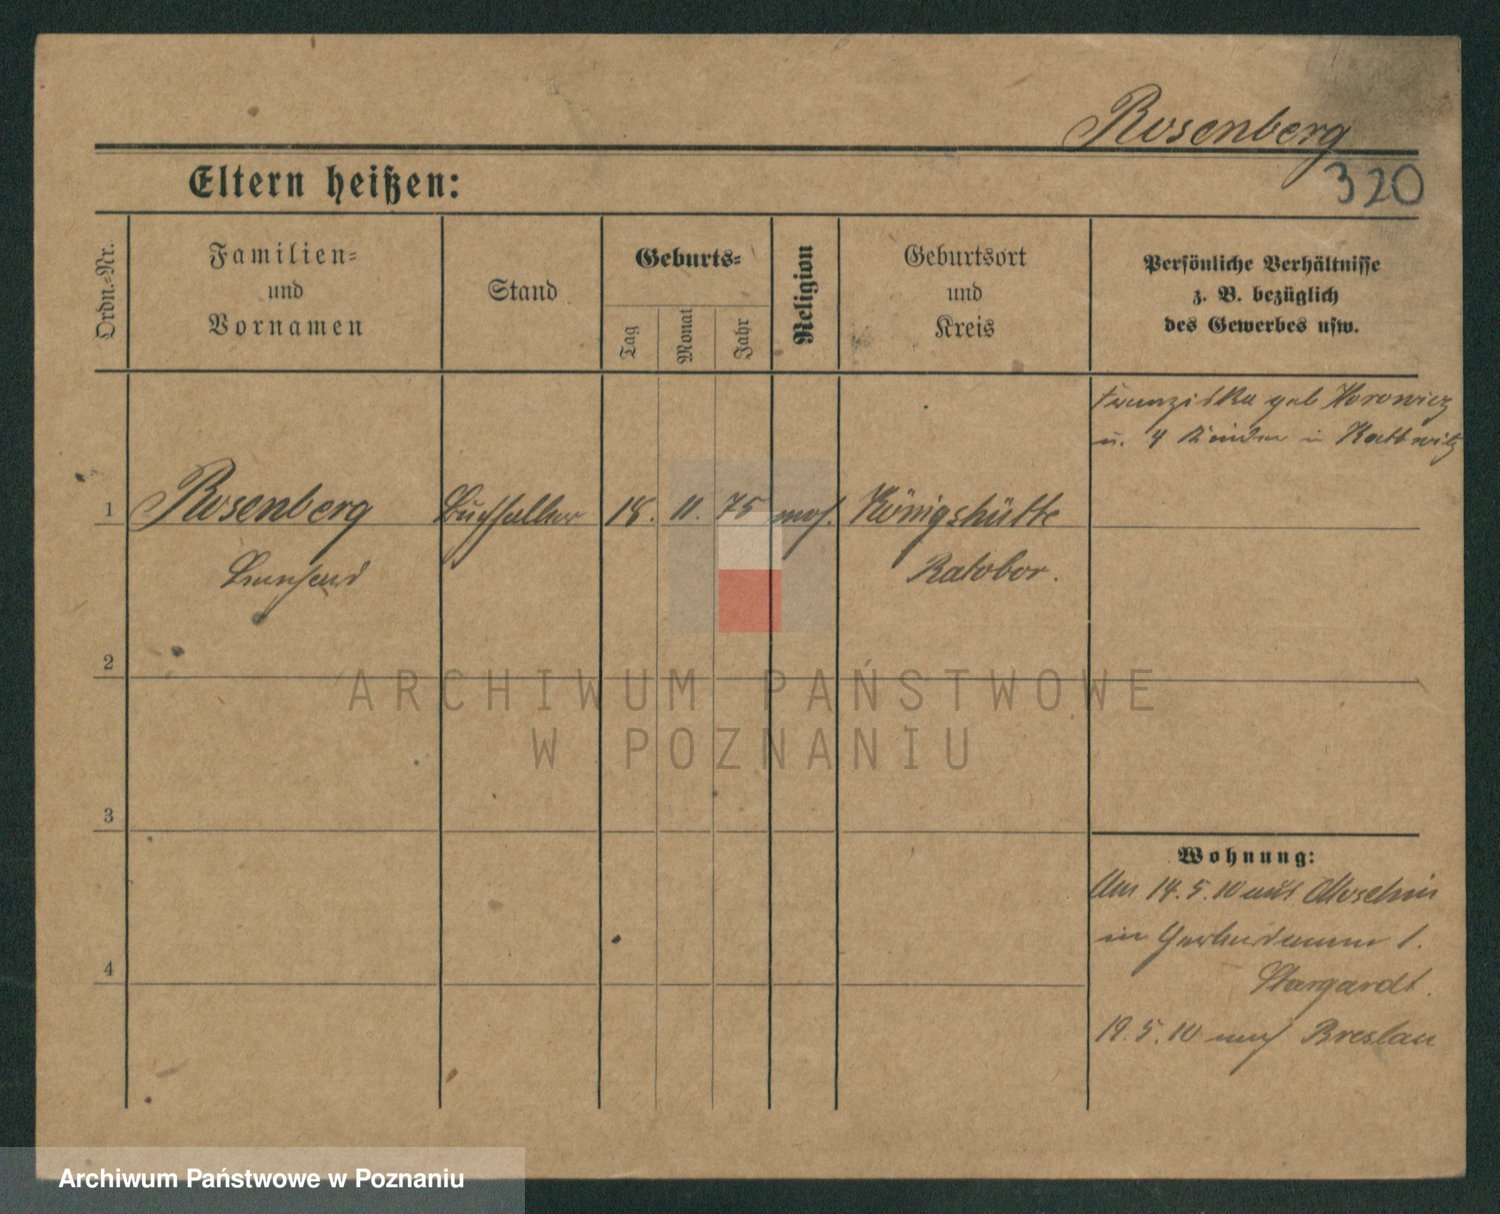 Rosenberg
320
Eltern heißen:
Ordn.-Nr.
Familien-
und
Vornamen
Stand
Geburts-
Tag
Monat
Jahr
Religion
Geburtsort
und
Kreis
Persönliche Verhältnisse
z. B. bezüglich
des Gewerbes usw.
Franziska geb Horowicz
u. 4 Kinder in Kattowitz
1 Rosenberg 18. 11. 75 mos. Königshütte
Ratobor.
2
ARCHIWUM PAŃSTWOWE
W POZNANIU
3
Wohnung:
Am 14.5.10 aus Moschin
in
4
Stargardt.
19.5.10 nach Breslau
Archiwum Państwowe w Poznaniu